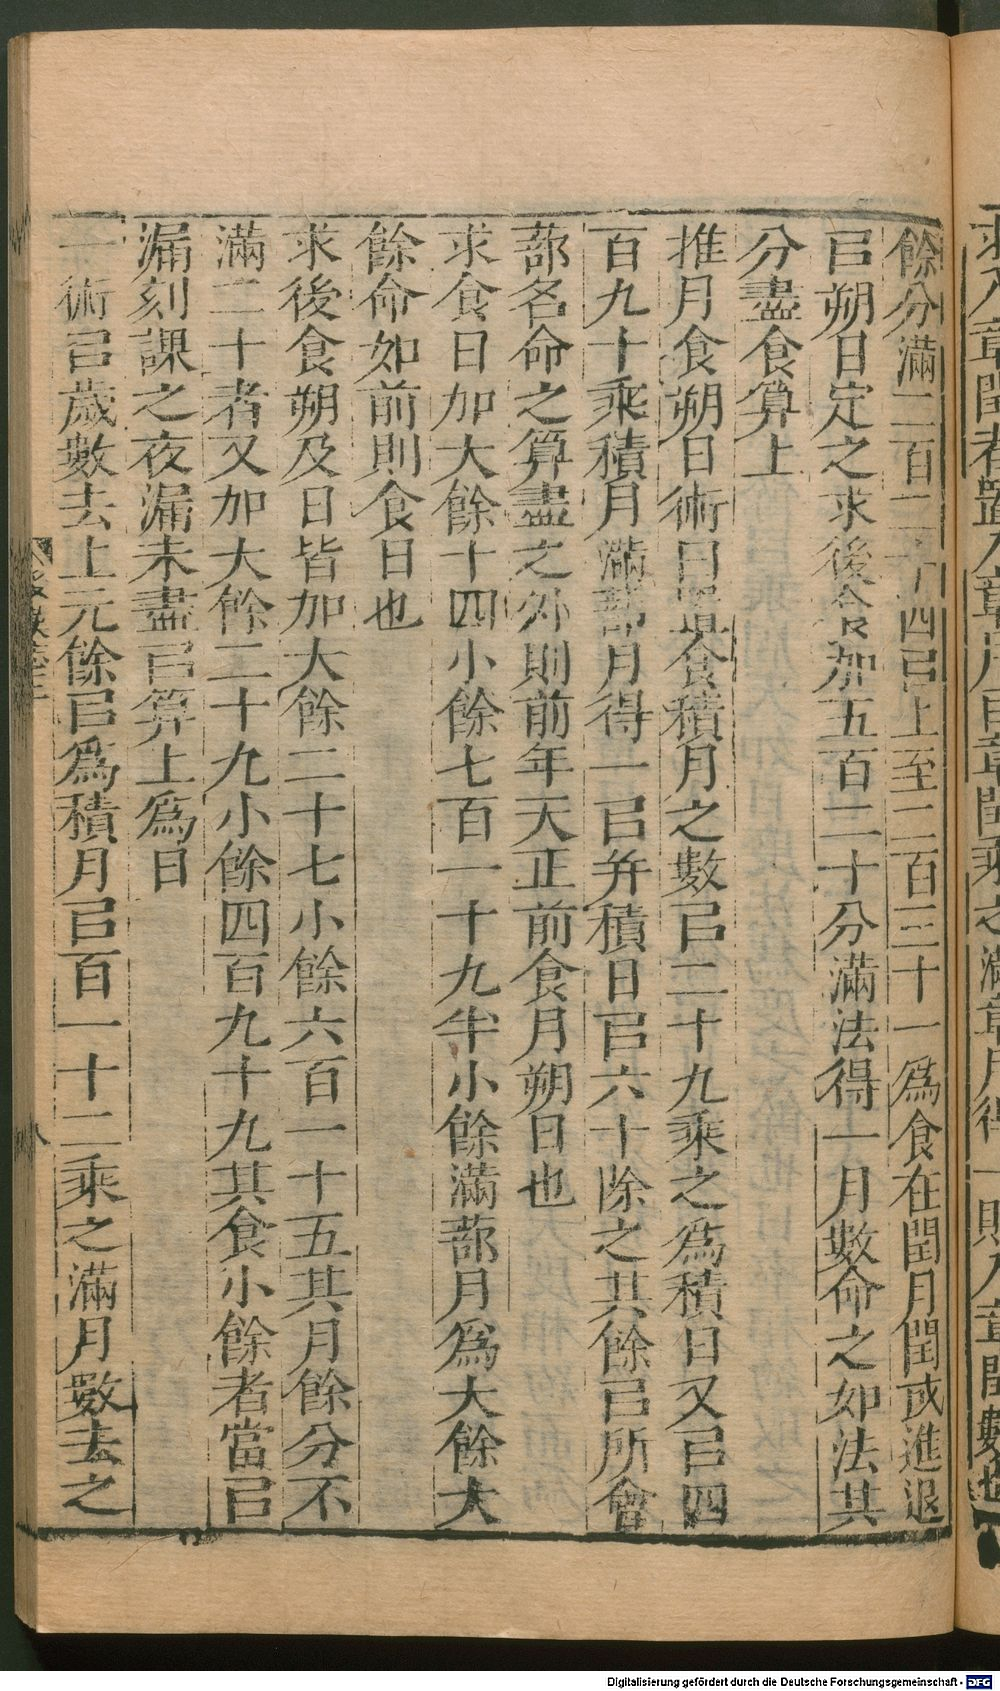 餘分滿二百二十四㠯上至二百三十一爲食在閏月閏或進退
㠯朔日定之求後食加五百二十分滿法得一月數命之如法其
分盡食算上
推月食朔日術曰置食積月之數㠯二十九乘之爲積日又㠯四
百九十乘積月滿蔀月得一㠯并積日㠯六十除之其餘㠯所會
蔀名命之算盡之外則前年天正前食月朔日也
求食日加大餘十四小餘七百一十九半小餘滿蔀月爲大餘大
餘命如前則食日也
求後食朔及日皆加大餘二十七小餘六百一十五其月餘分不
滿二十者又加大餘二十九小餘四百九十九其食小餘者當㠯
漏刻課之夜漏未盡㠯算上爲日
一術㠯歲數去上元餘㠯爲積月㠯百一十二乘之滿月數去之
八
Digitalisierung gefördert durch die Deutsche Forschungsgemeinschaft - DFG